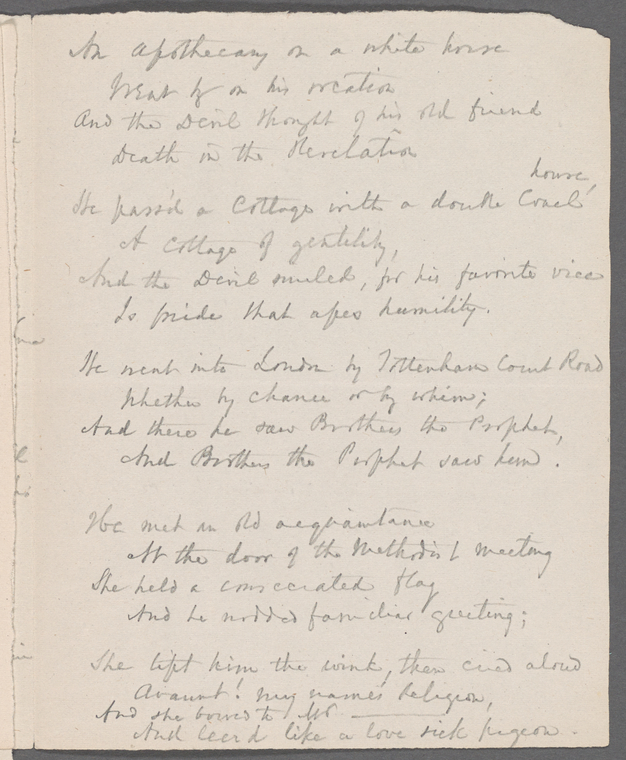 An Apothecary on a white horse
Went by on his vocation
And the Devil thought of his old friend
Death in the Revelation
He pass'd a Cottage with a double Coach house,
A Cottage of gentility,
And the Devil smiled, for his favorite vice
Is pride that apes humility.
He went into London by Tottenham Court Road
Whether by chance or by whim;
And there he saw Brothers the Prophet,
And Brothers the Prophet saw him.
He met an old acquaintance
At the door of the Methodist meeting
She held a consecrated flag
And he nodded familiar greeting;
She tipt him the wink, then cried aloud
Avaunt! my name's Religion,
And she bowed to Mr ———
And leer'd like a love sick pigeon.